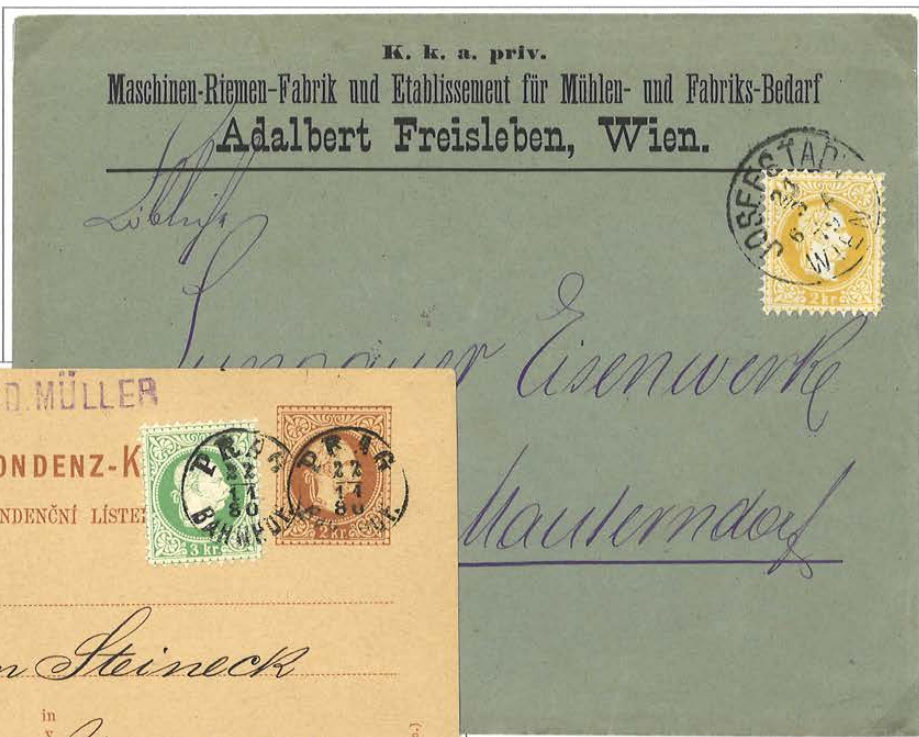 K. k. a. priv.
Maschinen-Riemen-Fabrik und Etablissement für Mühlen- und Fabriks-Bedarf
Adalbert Freisleben, Wien.
JOSEFSTADT
WIEN
2 kr.
Löbliche
Eisenwerke
Mauterndorf
D. MÜLLER
ONDENZ-K
NDENČNÍ LÍSTE
3 kr.
2 kr.
PRAG
22
11
80
BAHNHOF
PRAG
22
11
80
n Steineck
in
v